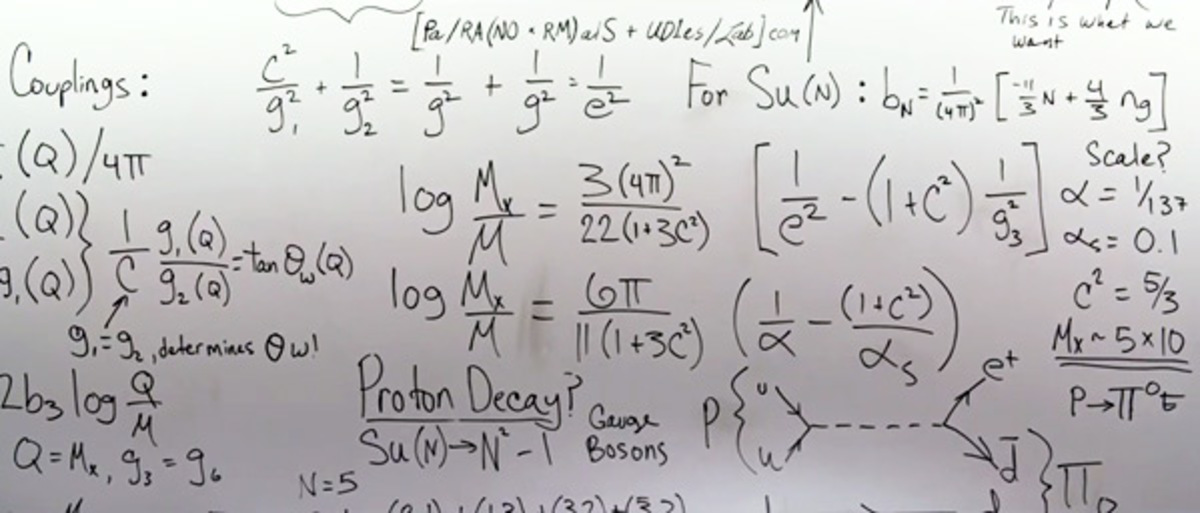 [Pa/RA(NO · RM)alS + UDles/Lab]com
This is what we
want
Couplings:
C²/g₁² + 1/g₂² = 1/g² + 1/g² = 1/e²
For Su(N) : b_N = 1/(4π)² [-11/3 N + 4/3 ng]
(Q)/4π
(Q)
g₁(Q)} 1/C g₁(Q)/g₂(Q) = tan θw(Q)
g₁=g₂, determines θw!
log Mx/M = 3(4π)²/22(1+3C²) [1/e² - (1+C²) 1/g₃²]
log Mx/M = 6π/11(1+3C²) (1/α - (1+C²)/αs)
Scale?
α = 1/137
αs = 0.1
C² = 5/3
Mx ~ 5×10
P→π⁰
2b₃ log Q/M
Q=Mx, g₃ = g₆
Proton Decay?
Su(N)→N²-1
Gauge
Bosons
N=5
P { u u
e⁺
d̄ } π₀